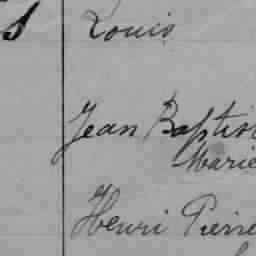 s Louis
Jean Baptis
Marie
Henri Pierre